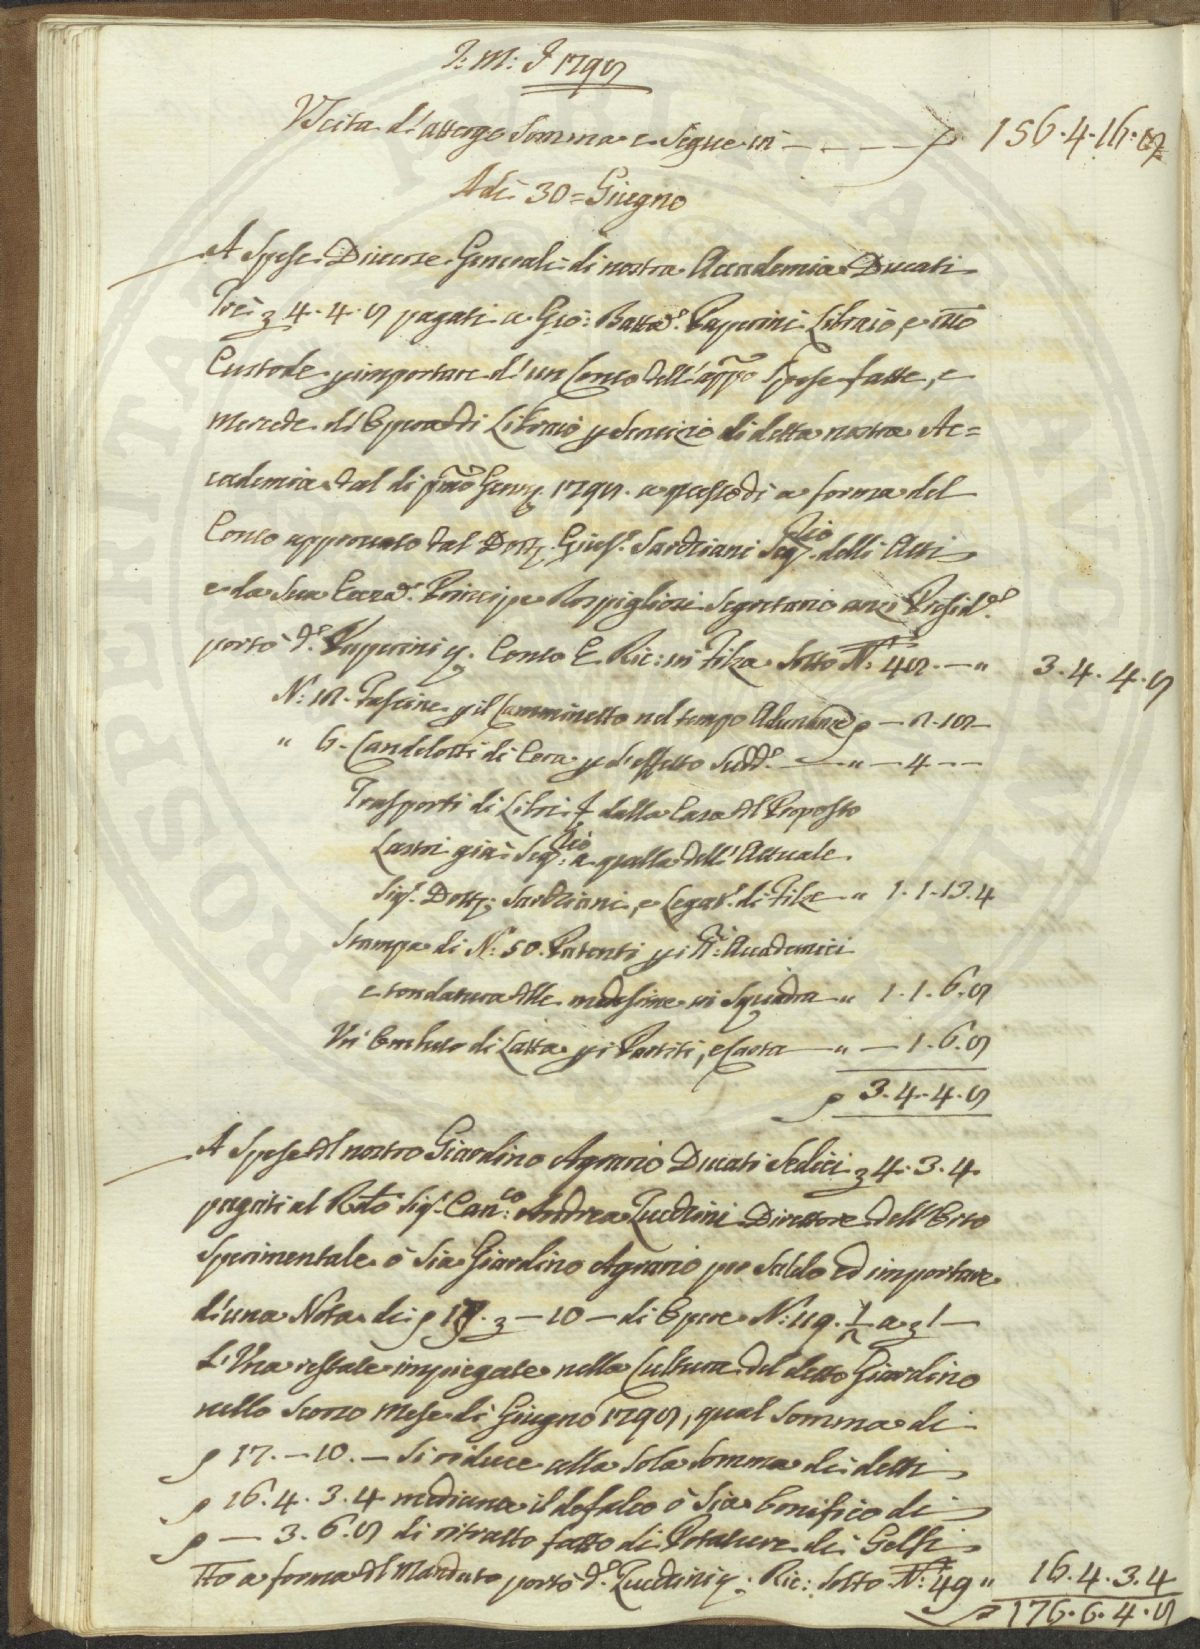 J: M: J 1798
Uscita d'attergo Somma e Segue in — — — — ꝭ 156.4.16.8
Adì 30 = Giugno
A Spese Diverse Generali di nostra Accademia Ducati
Tre ʒ 4.4.8 pagati a Gio: Batta. Paperini Libraio, e
Custode p importare d'un Conto dell' Spese fatte, e
Mercede di Opera di Libraio p Servizio di detta nostra Ac=
cademia dal di pmo Genn. 1798. a questo di a forma del
Conto approvato dal Dott. Gius. Sarchiani Segrio delli Atti
e da Sua Eccza. Principe Rospigliosi Segretario anzi Presid.e
portò d.o Paperini p. Conto E Ric: in Filza Sotto N: 48. — " 3.4.4.8
N: 18. Fascine p il Camminetto nel tempo Adunanze ꝭ — 2.18 —
" 6 - Candelotti di Cera p d'effetto Sudd.o — " — 4 — —
Trasporti di Libri dalla Casa del Proposto
Lastri già Segrio: a quella dell'Attuale
Sigr. Dott. Sarchiani, e Legat. di Filze " 1.1.13.4
Stampa di N: 50. Patenti p i Accademici
e tondatura delle medesime in Squadra " 1.1.6.8
Un Imbuto di Latta p i Partiti, e Carta — " — 1.6.8
ꝭ 3.4.4.8
A Spese del nostro Giardino Agrario Ducati Sedici ʒ 4.3.4
pagati al Sigr. Can.co Andrea Zucchini Direttore dell'Orto
Sperimentale ò Sia Giardino Agrario per Saldo ed importare
d'una Nota di ꝭ 17. ʒ — 10 — di Opere N: 119. 1/2 a ʒ 1 —
L'Una restate impiegate nella Cultura del detto Giardino
nello Scorso Mese di Giugno 1798, qual Somma di
ꝭ 17. — 10. — Si riduce alla Sola Somma di detti
ꝭ 16.4.3.4 mediante il defalco ò Sia bonifico di
ꝭ — 3.6.8 di ritratto fatto di Potature di Gelsi
Tto a forma del Mandato portò d.o Zucchini p: Ric: Sotto N: 49 " 16.4.3.4
ꝭ 176.6.4.8